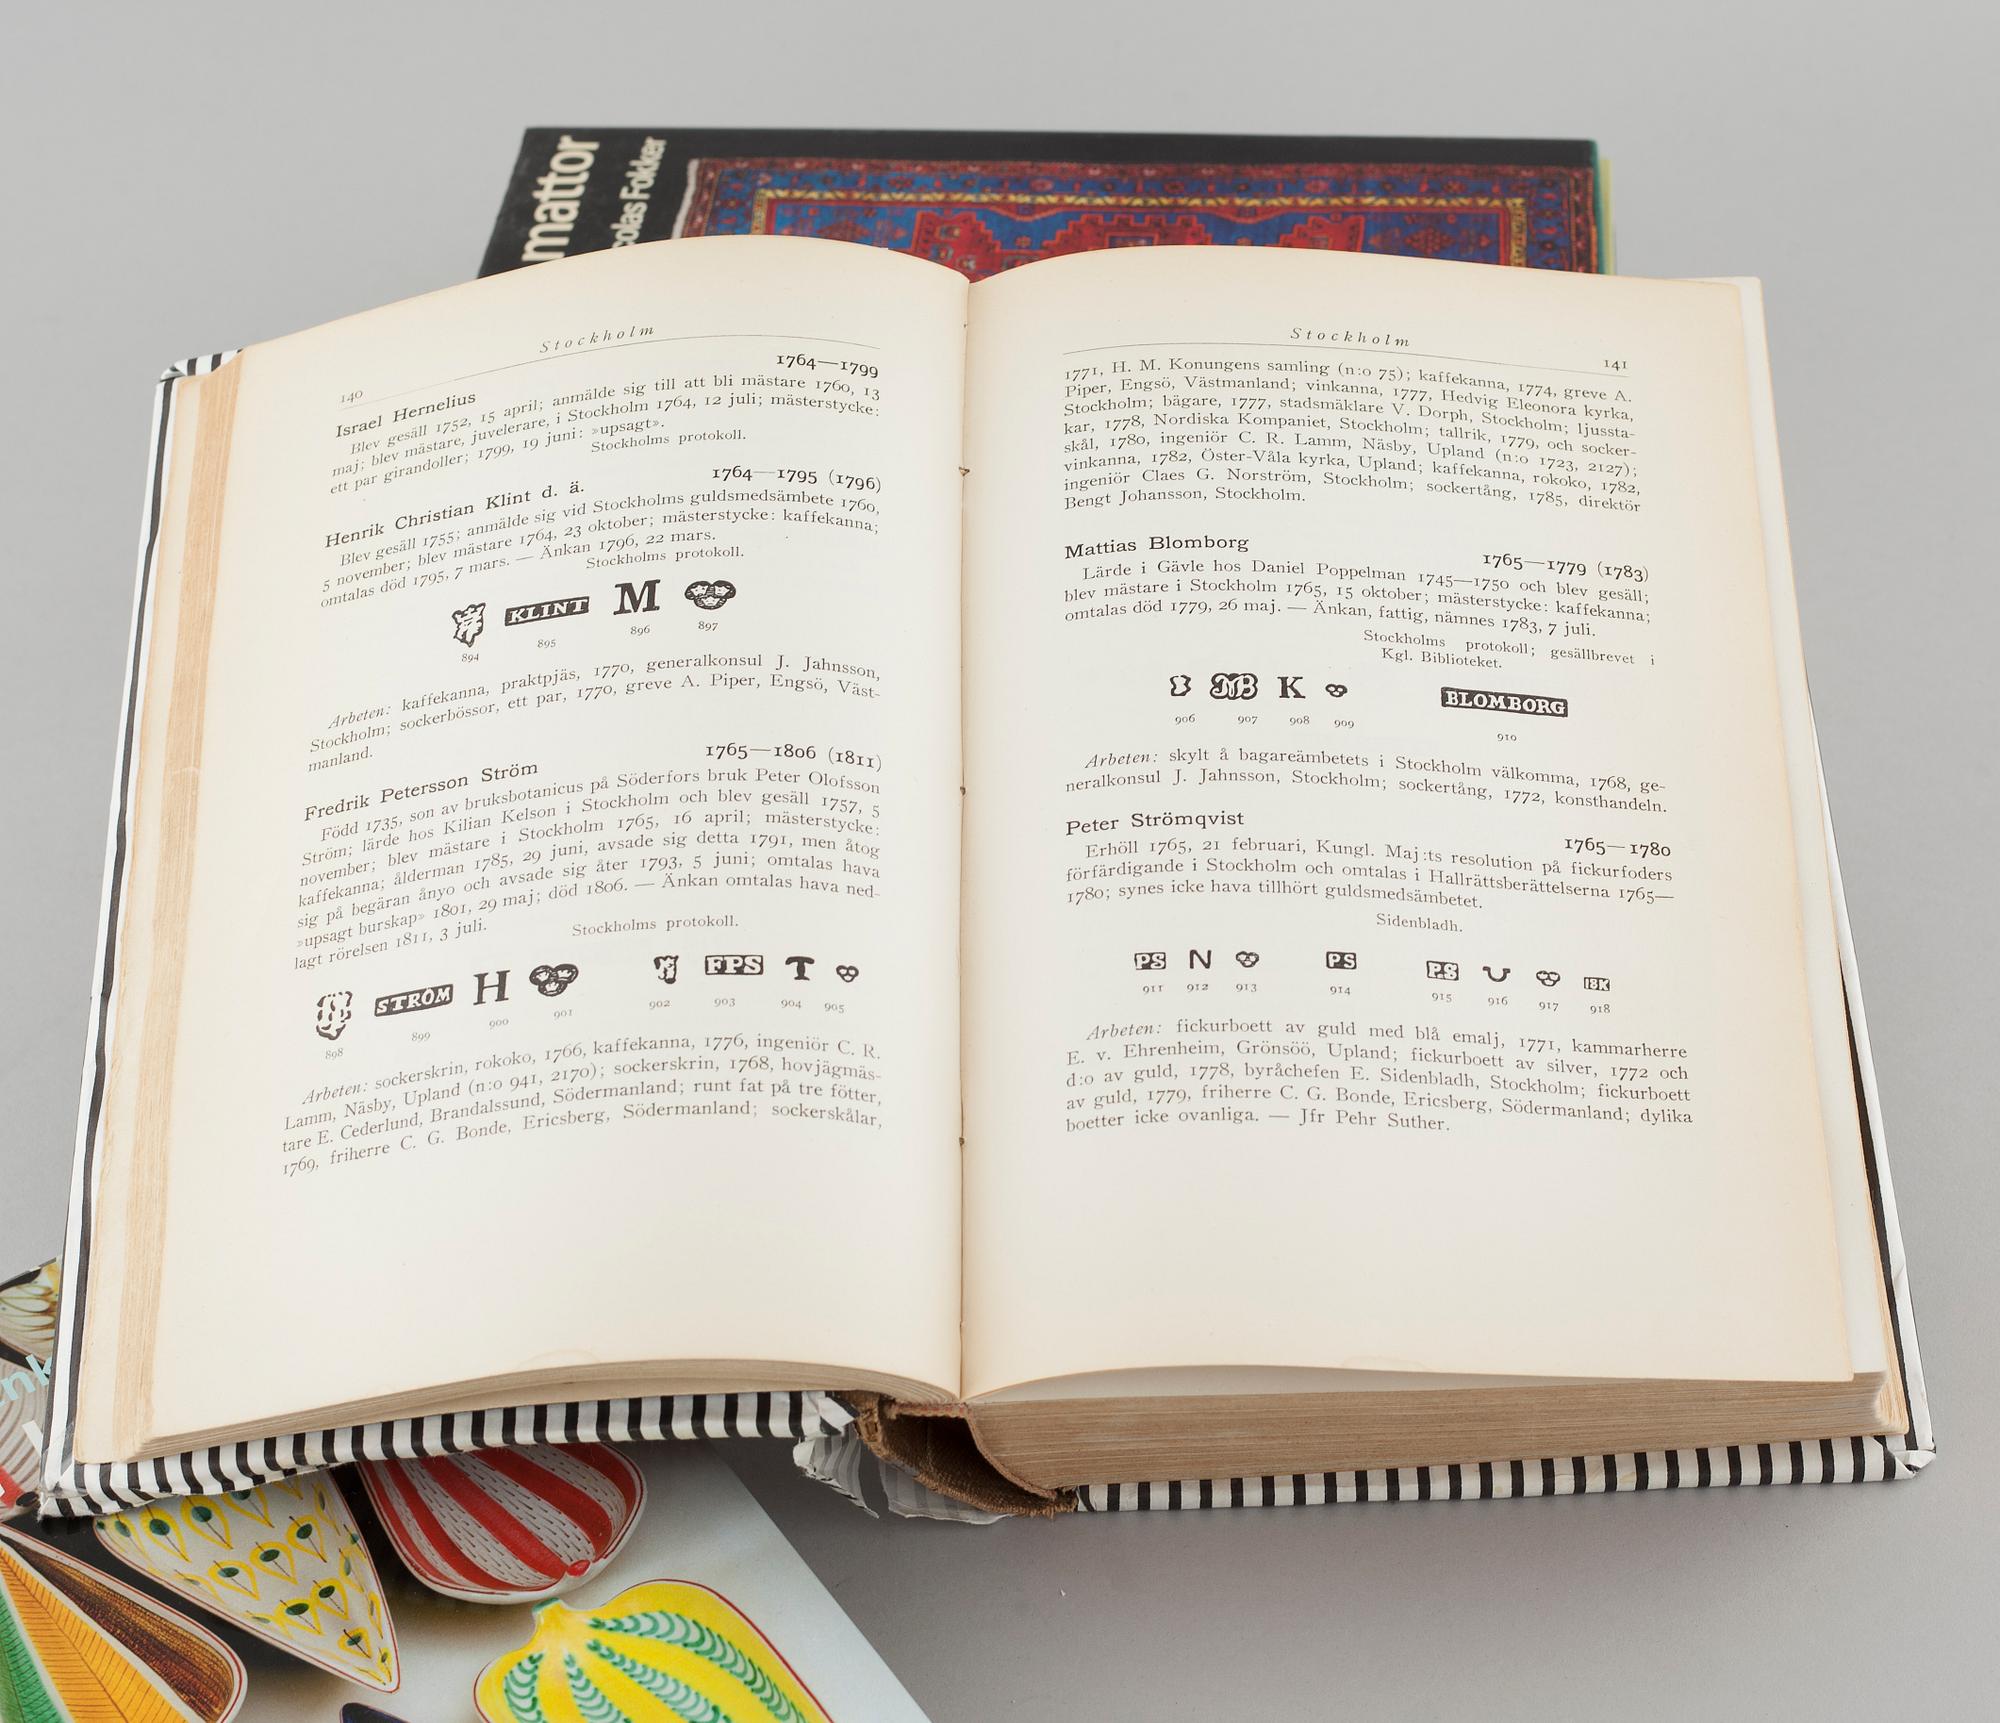 mattor
colas Fokker
Stockholm
140
1764—1799
Israel Hernelius
Blev gesäll 1752, 15 april; anmälde sig till att bli mästare 1760, 13
maj; blev mästare, juvelerare, i Stockholm 1764, 12 juli; mästerstycke:
ett par girandoller; 1799, 19 juni: »upsagt».
Stockholms protokoll.
1764—1795 (1796)
Henrik Christian Klint d. ä.
Blev gesäll 1755; anmälde sig vid Stockholms guldsmedsämbete 1760,
5 november; blev mästare 1764, 23 oktober; mästerstycke: kaffekanna;
omtalas död 1795, 7 mars. — Änkan 1796, 22 mars.
Stockholms protokoll.
KLINT M
894 895 896 897
Arbeten: kaffekanna, praktpjäs, 1770, generalkonsul J. Jahnsson,
Stockholm; sockerbössor, ett par, 1770, greve A. Piper, Engsö, Väst-
manland.
1765—1806 (1811)
Fredrik Petersson Ström
Född 1735, son av bruksbotanicus på Söderfors bruk Peter Olofsson
Ström; lärde hos Kilian Kelson i Stockholm och blev gesäll 1757, 5
november; blev mästare i Stockholm 1765, 16 april; mästerstycke:
kaffekanna; ålderman 1785, 29 juni, avsade sig detta 1791, men åtog
sig på begäran ånyo och avsade sig åter 1793, 5 juni; omtalas hava
»upsagt burskap» 1801, 29 maj; död 1806. — Änkan omtalas hava ned-
lagt rörelsen 1811, 3 juli.
Stockholms protokoll.
STRÖM H FPS T
898 899 900 901 902 903 904 905
Arbeten: sockerskrin, rokoko, 1766, kaffekanna, 1776, ingeniör C. R.
Lamm, Näsby, Upland (n:o 941, 2170); sockerskrin, 1768, hovjägmäs-
tare E. Cederlund, Brandalssund, Södermanland; runt fat på tre fötter,
1769, friherre C. G. Bonde, Ericsberg, Södermanland; sockerskålar,
Stockholm
141
1771, H. M. Konungens samling (n:o 75); kaffekanna, 1774, greve A.
Piper, Engsö, Västmanland; vinkanna, 1777, Hedvig Eleonora kyrka,
Stockholm; bägare, 1777, stadsmäklare V. Dorph, Stockholm; ljussta-
kar, 1778, Nordiska Kompaniet, Stockholm; tallrik, 1779, och socker-
skål, 1780, ingeniör C. R. Lamm, Näsby, Upland (n:o 1723, 2127);
vinkanna, 1782, Öster-Våla kyrka, Upland; kaffekanna, rokoko, 1782,
ingeniör Claes G. Norström, Stockholm; sockertång, 1785, direktör
Bengt Johansson, Stockholm.
Mattias Blomborg
1765—1779 (1783)
Lärde i Gävle hos Daniel Poppelman 1745—1750 och blev gesäll;
blev mästare i Stockholm 1765, 15 oktober; mästerstycke: kaffekanna;
omtalas död 1779, 26 maj. — Änkan, fattig, nämnes 1783, 7 juli.
Stockholms protokoll; gesällbrevet i
Kgl. Biblioteket.
MB K BLOMBORG
906 907 908 909 910
Arbeten: skylt å bagareämbetets i Stockholm välkomma, 1768, ge-
neralkonsul J. Jahnsson, Stockholm; sockertång, 1772, konsthandeln.
Peter Strömqvist
1765—1780
Erhöll 1765, 21 februari, Kungl. Maj:ts resolution på fickurfoders
förfärdigande i Stockholm och omtalas i Hallrättsberättelserna 1765—
1780; synes icke hava tillhört guldsmedsämbetet.
Sidenbladh.
PS N PS PS 18K
911 912 913 914 915 916 917 918
Arbeten: fickurboett av guld med blå emalj, 1771, kammarherre
E. v. Ehrenheim, Grönsöö, Upland; fickurboett av silver, 1772 och
d:o av guld, 1778, byråchefen E. Sidenbladh, Stockholm; fickurboett
av guld, 1779, friherre C. G. Bonde, Ericsberg, Södermanland; dylika
boetter icke ovanliga. — Jfr Pehr Suther.